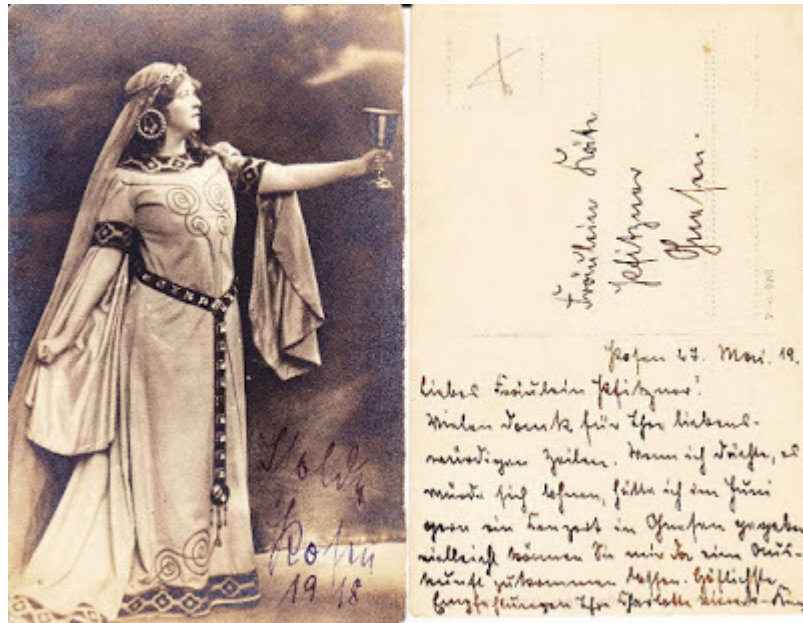 Isolde
Posen
1918
Fräulein Käte
Pfitzner
Gnesen.
Posen 27. Mai. 19.
Liebes Fräulein Pfitzner!
Vielen Dank für Ihre liebens-
würdigen Zeilen. Wenn ich dächte, es
würde sich lohnen, hätte ich im Juni
gern ein Konzert in Gnesen gegeben
vielleicht können Sie mir da eine Aus-
kunft zukommen lassen. Höflichste
Empfehlungen Ihre Charlotte